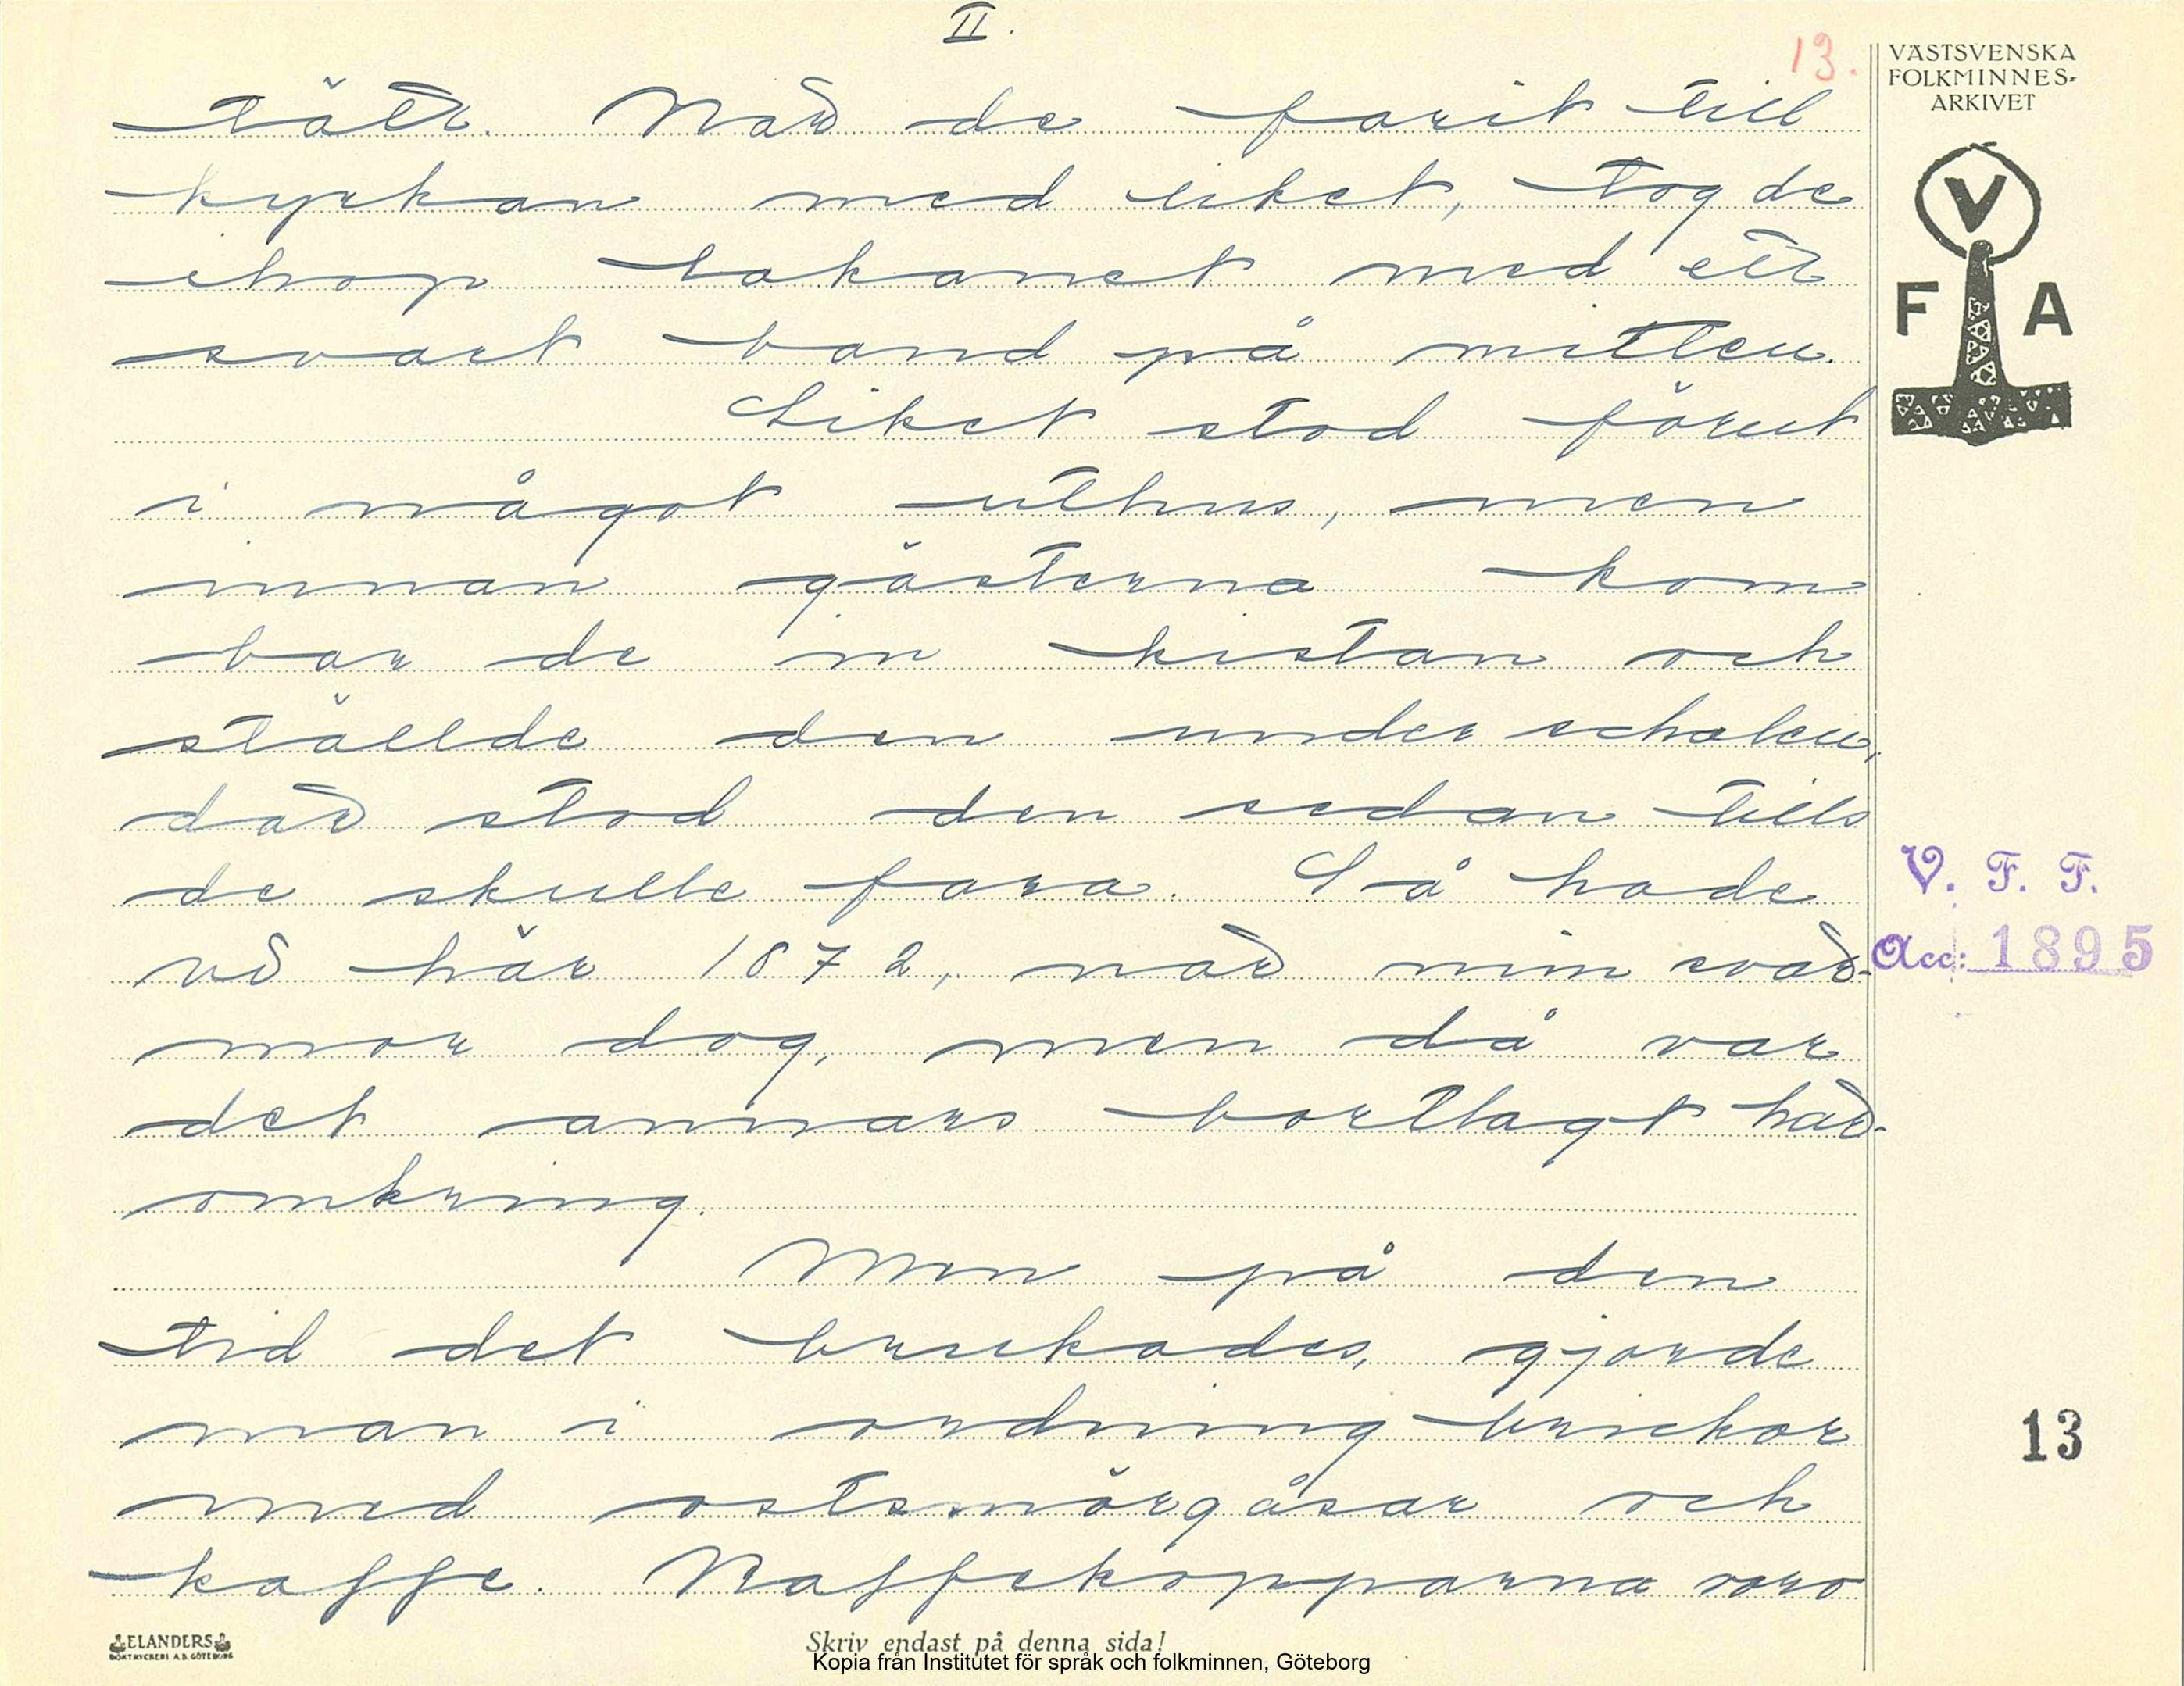 II.
13.
VÄSTSVENSKA
FOLKMINNES-
ARKIVET
V
F A
tätt. När de farit till
kyrkan med liket, tog de
ihop lakanet med ett
svart band på mitten.
Liket stod förut
i något uthus, men
innan gästerna kom
bar de in kistan och
ställde den under schalen,
där stod den sedan tills
de skulle fara. Så hade
vi här 1872, när min svär-
mor dog, men då var
det annars bortlagt här-
omkring.
Men på den
tid det brukades, gjorde
man i ordning brickor
med ostsmörgåsar och
kaffe. Kaffekopparna voro
V. F. F.
Acc: 1895
13
ELANDERS
BOKTRYCKERI A.B. GÖTEBORG
Skriv endast på denna sida!
Kopia från Institutet för språk och folkminnen, Göteborg